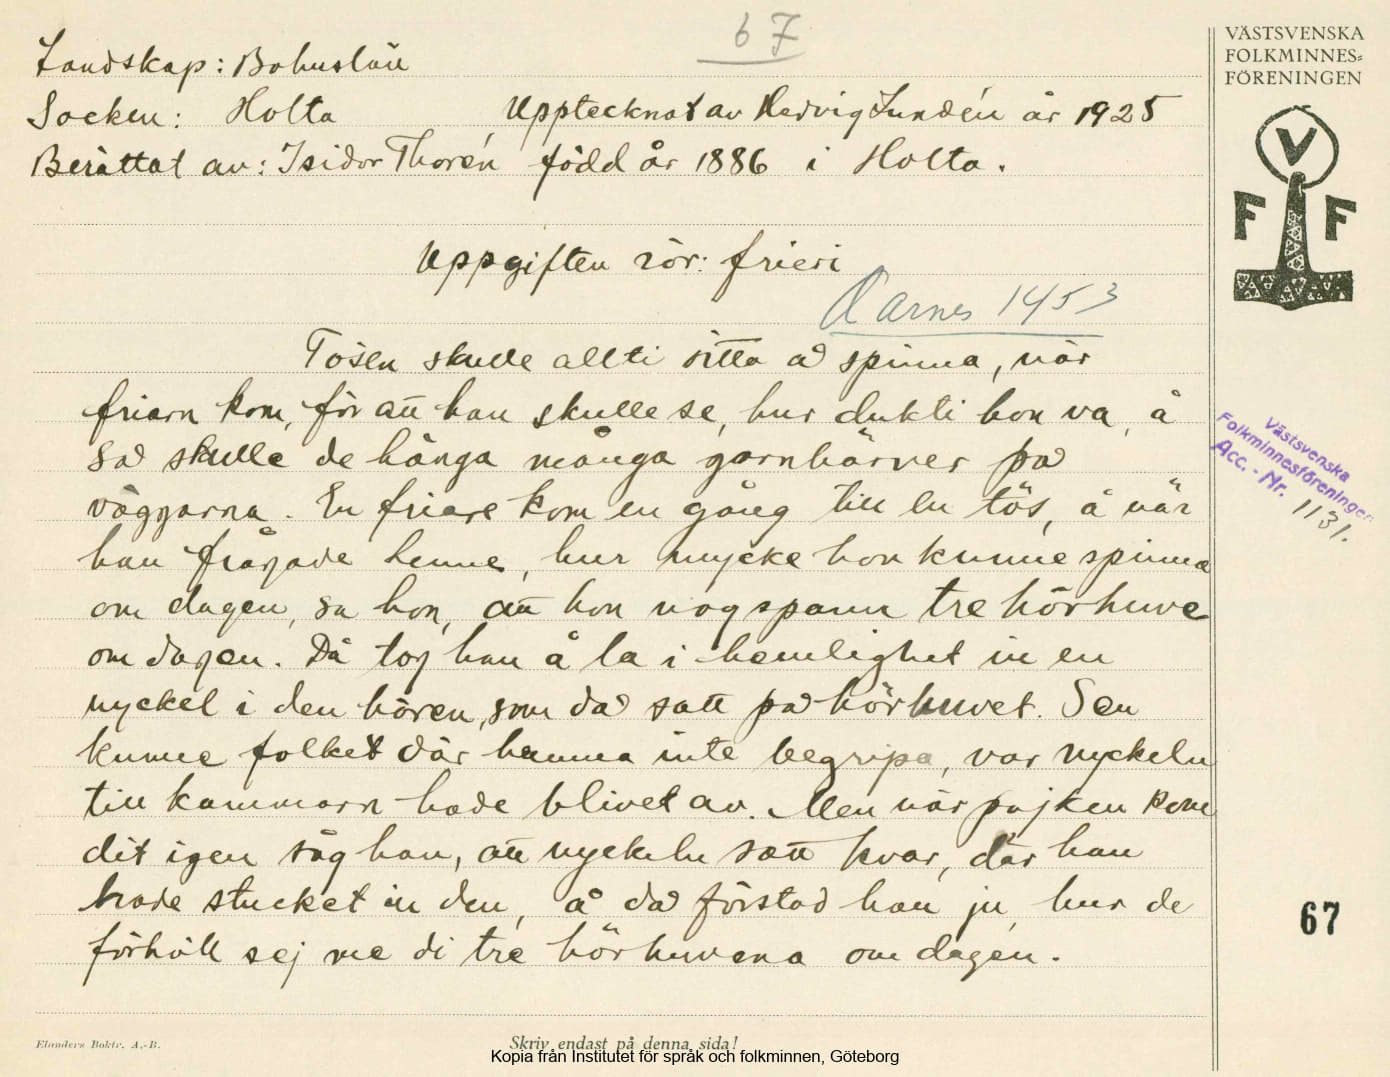 67
VÄSTSVENSKA
FOLKMINNES=
FÖRENINGEN
Landskap: Bohuslän
Socken: Holta Upptecknat av Hedvig Lundén år 1925
Berättat av: Isidor Thorén född år 1886 i Holta.
V
F F
Uppgiften rör: frieri
Aarnes 1453
Tösen skulle allti sitta å spinna, när
friarn kom, för att han skulle se, hur dukti hon va, å
så skulle de hänga många garnhärver på
väggarna. En friare kom en gång till en tös, å när
han frågade henne, hur mycke hon kunne spinna
om dagen, sa hon, att hon nog spann tre hörhuve
om dagen. Då tog han å la i hemlighet in en
nyckel i den hören, som då satt på hörhuvet. Sen
kunne folket där hemma inte begripa, var nyckeln
till kammarn hade blivet av. Men när pojken kom
dit igen såg han, att nyckeln satt kvar, där han
hade stucket in den, å då förstod han ju, hur de
förhöll sej me di tre hörhuvena om dagen.
Västsvenska
Folkminnesföreningen
Acc.-Nr. 1131.
67
Elanders Boktr. A.-B.
Skriv endast på denna sida!
Kopia från Institutet för språk och folkminnen, Göteborg